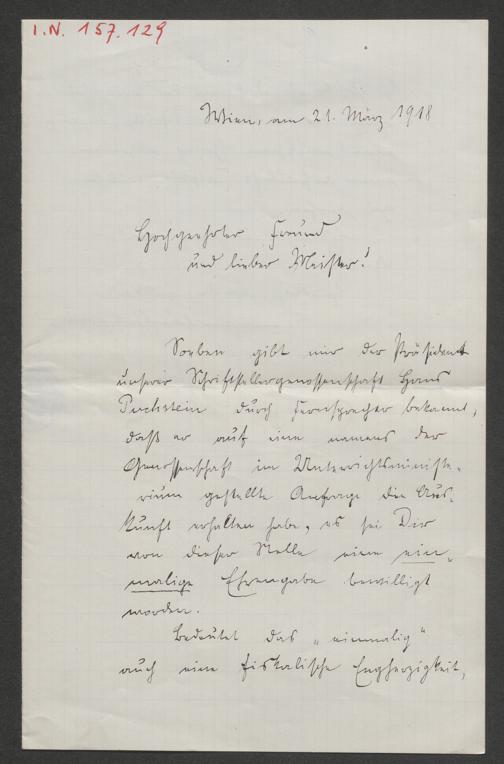 I.N. 157.129
Wien, am 21. März 1918
Hochgeehrter Freund
und lieber Meister!
Soeben gibt mir der Präsident
unserer Schriftstellergenossenschaft Hans
Puchstein durch Fernsprecher bekannt,
daß er auf eine namens der
Genossenschaft im Unterrichtsministe-
rium gestellte Anfrage die Aus-
kunft erhalten habe, es sei Dir
von dieser Stelle eine ein-
malige Ehrengabe bewilligt
worden.
Bedeutet das „einmalig"
auch eine fiskalische Engherzigkeit,